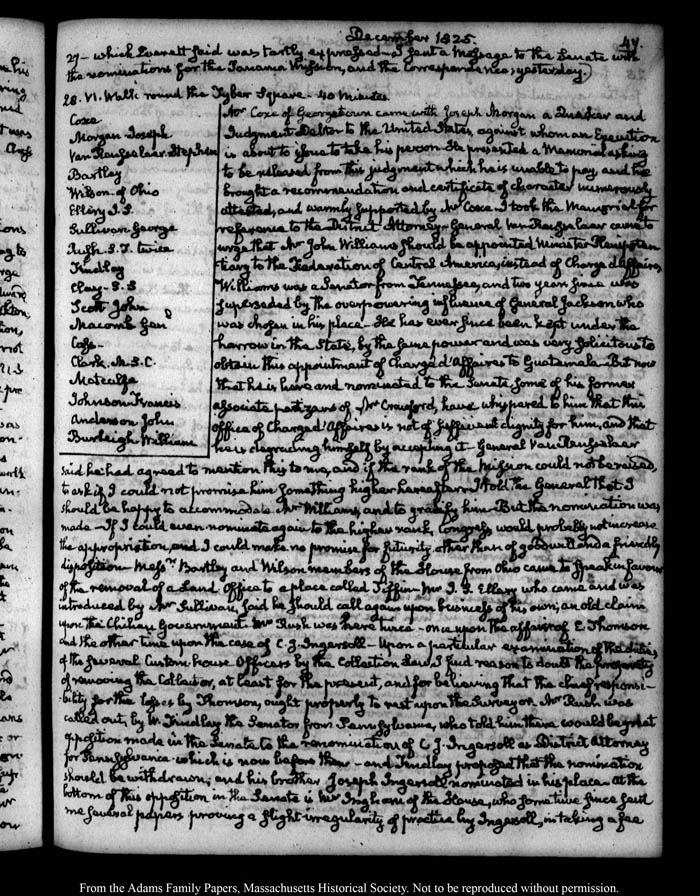 December 1825.
47.
27 – which Everett said was tartly expressed – I sent a Message to the Senate with
the nominations for the Panama Mission, and the Correspondence, yesterday.)
28. VI. Walk round the Tyber Square – 40 Minutes.
Coxe
Morgan Joseph
Van Rensselaer Stephen
Bartley
Wilson – of Ohio
Ellery I. G.
Sullivan George
Rush – twice
Findlay
Clay –
Scott John
Macomb Gen
Cass –
Clark. M. S. C.
Metcalfe
Johnson Francis
Anderson John
Burleigh William
Mr Coxe of Georgetown came with Joseph Morgan a Quaker and
Judgment Debtor to the United States, against whom an Execution
is about to issue to take his person. He presented a Memorial asking
to be released from this judgment which he is unable to pay, and he
brought a recommendation and certificate of character numerously
attested, and warmly supported by Mr Coxe. I took the Memorial for
reference to the District Attorney – General Van Rensselaer came to
urge that Mr John Williams should be appointed Minister Plenipoten
tiary to the Federation of Central America, instead of Chargé d'Affaires
Williams was a Senator from Tennessee, and two years since was
superseded by the overpowering influence of General Jackson who
was chosen in his place. He has ever since been kept under the
harrow in the State, by the same power and was very solicitous to
obtain this appointment of Chargé d'Affaires to Guatemala. But now
that he is here and nominated to the Senate some of his former
associate partizans of Mr Crawford, have whispered to him that this
office of Chargé d'Affaires is not of sufficient dignity for him, and that
he is degrading himself by accepting it – General Van Rensselaer
said he had agreed to mention this to me, and if the rank of the Mission could not be raised,
to ask if I could not promise him something higher hereafter. I told the General that I
should be happy to accommodate Mr Williams, and to gratify him. But the nomination was
made – If I could even nominate again to the higher rank, Congress would probably not increase
the appropriation, and I could make no promise for futurity other than of goodwill and a friendly
disposition – Messrs Bartley and Wilson members of the House from Ohio came to speak in favour
of the removal of a Land Office to a place called Tiffin – Mr I. G. Ellery who came and was
introduced by Mr Sullivan, said he should call again upon business of his own; an old claim
upon the Chilian Government. Mr Rush was here twice – once upon the affair of E. Thomson
and the other time upon the case of C. J. Ingersoll – Upon a particular examination of the duties
of the several Custom house Officers by the Collection Law, I find reason to doubt the propriety
of removing the Collector, at least for the present, and for believing that the chief responsi-
bility for the losses by Thomson, ought properly to rest upon the Surveyor. Mr Rush was
called out, by Mr Findlay the Senator from Pennsylvania, who told him there would be great
opposition made in the Senate to the renomination of C. J. Ingersoll as District Attorney
for Pennsylvania which is now before them – and Findlay proposed that the nomination
should be withdrawn; and his brother Joseph Ingersoll nominated in his place. At the
bottom of this opposition in the Senate is Mr Ingham of the House, who some time since sent
me several papers proving a slight irregularity of practice by Ingersoll, in taking a fee
From the Adams Family Papers, Massachusetts Historical Society. Not to be reproduced without permission.